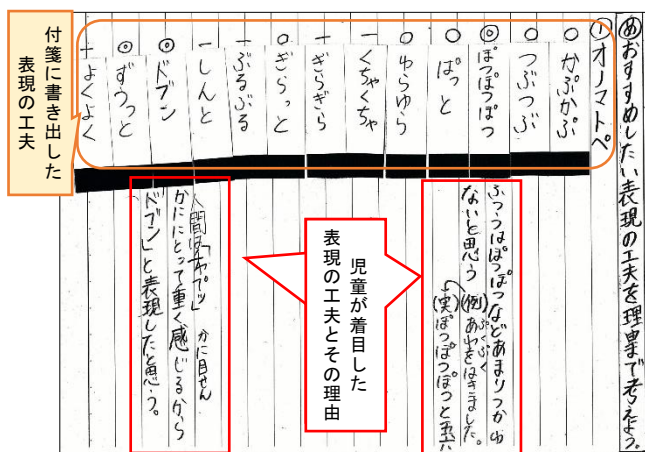 ㋱おすすめしたい表現の工夫を理由まで考えよう。
①オノマトペ
○かぷかぷ
○つぶつぶ
◎ぽつぽつぽつ
○ぱっと
○ゆらゆら
一くちゃくちゃ
＋ぎらぎら
○ぎらっと
＋ぶるぶる
一しんと
◎ドブン
◎ずうっと
＋よくよく
付箋に書き出した
表現の工夫
ふつうはぽつぽつなどあまりつかわ
ないと思う
(例)ぷくぷく
あわをはきました。
(実)ぽつぽつぽつと五六
児童が着目した
表現の工夫とその理由
人間は
かに目せん
かににとって重く感じるから
ドブン」と表現したと思う。